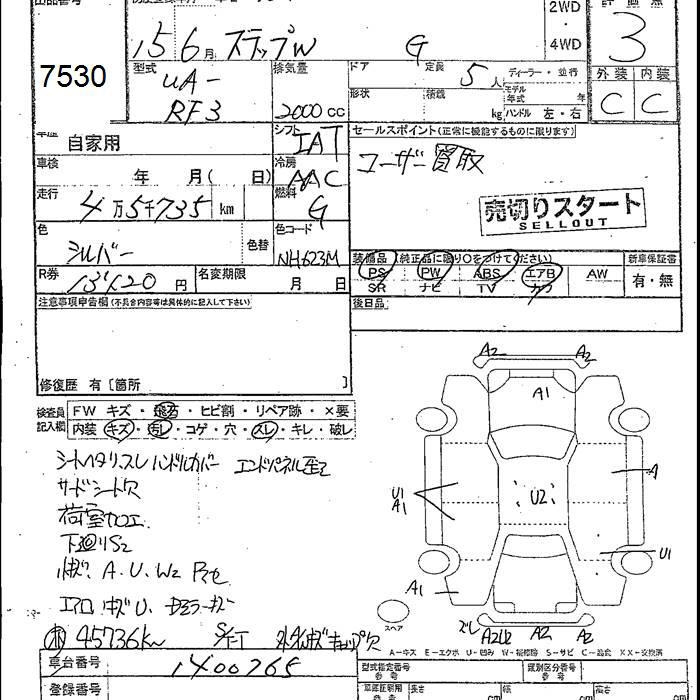 2WD
・
4WD
3
15 6月 ステップW G
7530
型式 UA-
RF3
排気量
2000cc
ドア 定員 5人
ディーラー・並行
形状 積載 kg
モデル年式 年
ハンドル 左・右
外装 内装
C C
車歴 自家用
シフト IAT
セールスポイント(正常に機能するものに限ります)
ユーザー買取
車検 年 月( 日)
冷房 AAC
走行 4万5千735km
燃料 G
売切りスタート
SELLOUT
色 シルバー 色替
色コード NH623M
装備品(純正品に限り○をつけてください) 新車保証書
PS PW ABS エアB AW 有・無
SR ナビ TV カワ
R券 13120円 名変期限 月 日
後日品
注意事項申告欄(不具合内容等は具体的に記入して下さい)
修復歴 有〔箇所 〕
検査員記入欄
FW キズ・飛石・ヒビ割・リペア跡・×要
内装 キズ・汚レ・コゲ・穴・スレ・キレ・破レ
シートヘタリ、スレ ハンドルカバー エンドパネル歪
サードシート穴
荷室カロエ
下廻りS2
A.U.W2
エアロ キズU.
45736km
車台番号 1400765
登録番号
A2 A2
A1
A
U1
A1
U2
U1
A1
スペア
ズレ A2U2 A2 A2
A-キズ E-エクボ U-凹み W-補修跡 S-サビ C-腐食 XX-交換済
型式指定番号 類別区分番号
長さ cm 幅 高さ cm